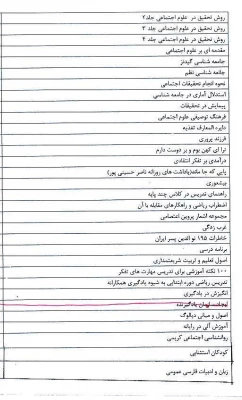 روش تحقیق در علوم اجتماعی جلد۲
روش تحقیق در علوم اجتماعی جلد ۳
روش تحقیق در علوم اجتماعی جلد ۴
مقدمه ای بر علوم اجتماعی
جامعه شناسی گیدنز
جامعه شناسی نظم
نحوه انجام تحقیقات اجتماعی
استدلال آماری در جامعه شناسی
پیمایش در تحقیقات
فرهنگ توصیفی علوم اجتماعی
دایره المعارف تغذیه
فرزند پروری
ترا ای کهن بوم و بر دوست دارم
درآمدی بر تفکر انتقادی
پایی که جا ماند(یاداشت های روزانه ناصر حسینی پور)
بیشعوری
راهنمای تدریس در کلاس چند پایه
اضطراب ریاضی و راهکارهای مقابله با آن
مجموعه اشعار پروین اعتصامی
غرب زدگی
خاطرات ۱۹۵ نو الدین پسر ایران
برنامه درسی
اصول تعلیم و تربیت شریعتمداری
۱۰۰ نکته آموزشی برای تدریس مهارت های تفکر
تدریس ریاضی دوره ابتدایی به شیوه یادگیری همکارانه
انگیزش در یادگیری
یادگیرنده
اصول و مبانی دیالوگ
آموزش آلی در رایانه
روانشناسی اجتماعی کریمی
کودکان استثنایی
زبان و ادبیات فارسی عمومی